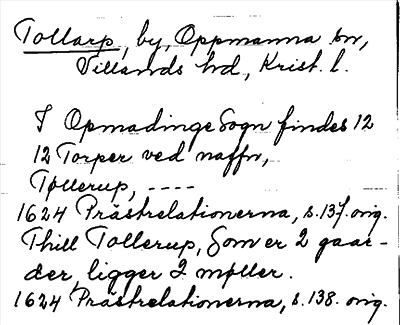 Tollarp, by, Oppmanna sn,
Villands hd, Krist. l.
I Opmadinge Sogn findes 12
12 Torper ved naffn,
Tøllerup, ----
1624 Prästrelationerna, s. 137. orig.
Thill Tollerup, Som er 2 gaar-
der, ligger 2. møller.
1624 Prästrelationerna, s. 138. orig.